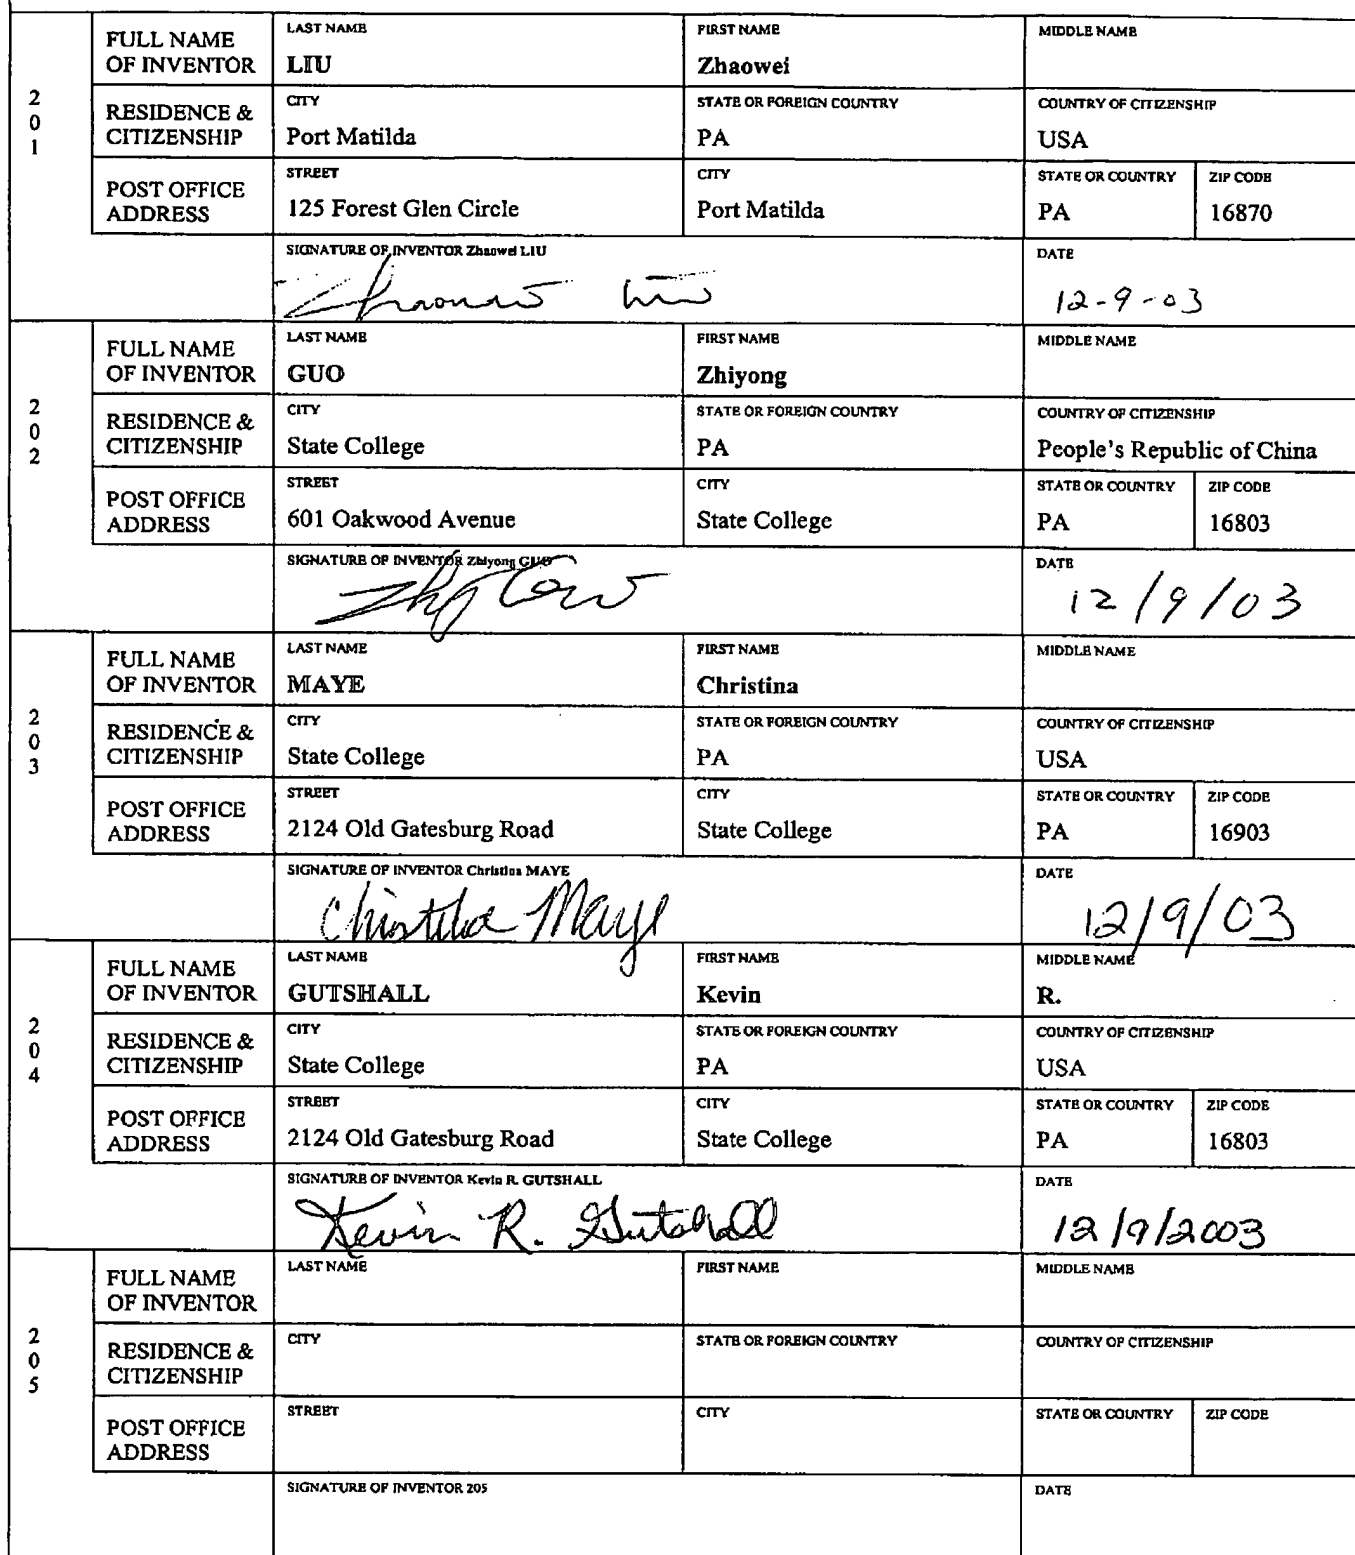 2 0 1
FULL NAME OF INVENTOR
LAST NAME
LIU
FIRST NAME
Zhaowei
MIDDLE NAME
RESIDENCE & CITIZENSHIP
CITY
Port Matilda
STATE OR FOREIGN COUNTRY
PA
COUNTRY OF CITIZENSHIP
USA
POST OFFICE ADDRESS
STREET
125 Forest Glen Circle
CITY
Port Matilda
STATE OR COUNTRY
PA
ZIP CODE
16870
SIGNATURE OF INVENTOR Zhaowei LIU
Zhaowei Liu
DATE
12-9-03
2 0 2
FULL NAME OF INVENTOR
LAST NAME
GUO
FIRST NAME
Zhiyong
MIDDLE NAME
RESIDENCE & CITIZENSHIP
CITY
State College
STATE OR FOREIGN COUNTRY
PA
COUNTRY OF CITIZENSHIP
People's Republic of China
POST OFFICE ADDRESS
STREET
601 Oakwood Avenue
CITY
State College
STATE OR COUNTRY
PA
ZIP CODE
16803
SIGNATURE OF INVENTOR Zhiyong GUO
DATE
12/9/03
2 0 3
FULL NAME OF INVENTOR
LAST NAME
MAYE
FIRST NAME
Christina
MIDDLE NAME
RESIDENCE & CITIZENSHIP
CITY
State College
STATE OR FOREIGN COUNTRY
PA
COUNTRY OF CITIZENSHIP
USA
POST OFFICE ADDRESS
STREET
2124 Old Gatesburg Road
CITY
State College
STATE OR COUNTRY
PA
ZIP CODE
16903
SIGNATURE OF INVENTOR Christina MAYE
Christina Maye
DATE
12/9/03
2 0 4
FULL NAME OF INVENTOR
LAST NAME
GUTSHALL
FIRST NAME
Kevin
MIDDLE NAME
R.
RESIDENCE & CITIZENSHIP
CITY
State College
STATE OR FOREIGN COUNTRY
PA
COUNTRY OF CITIZENSHIP
USA
POST OFFICE ADDRESS
STREET
2124 Old Gatesburg Road
CITY
State College
STATE OR COUNTRY
PA
ZIP CODE
16803
SIGNATURE OF INVENTOR Kevin R. GUTSHALL
Kevin R. Gutshall
DATE
12/9/2003
2 0 5
FULL NAME OF INVENTOR
LAST NAME
FIRST NAME
MIDDLE NAME
RESIDENCE & CITIZENSHIP
CITY
STATE OR FOREIGN COUNTRY
COUNTRY OF CITIZENSHIP
POST OFFICE ADDRESS
STREET
CITY
STATE OR COUNTRY
ZIP CODE
SIGNATURE OF INVENTOR 205
DATE